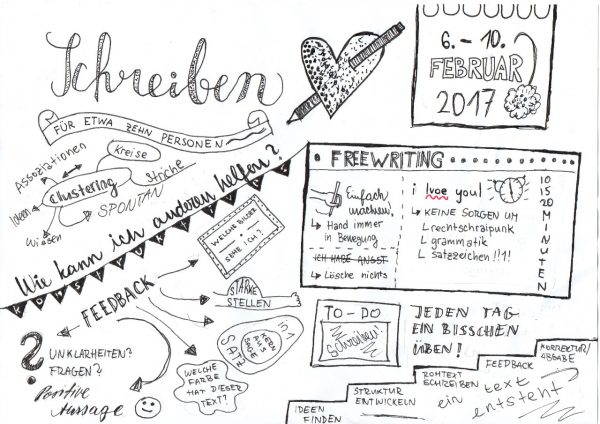 Schreiben
FÜR ETWA ZEHN PERSONEN
6. - 10.
FEBRUAR
2017
Assoziationen
Kreise
Clustering
Striche
Ideen
SPONTAN
Wissen
Wie kann ich anderen helfen?
KONSTRUKTIV
FEEDBACK
WELCHE BILDER
SEHE ICH?
STARKE
STELLEN
KERN
AUS
SAGE
SATZ
WELCHE
FARBE
HAT DIESER
TEXT?
?
UNKLARHEITEN?
FRAGEN?
Positive
Aussage
FREEWRITING
Einfach
machen!
Hand immer
in Bewegung
ICH HABE ANGST
Lösche nichts
i lvoe you!
KEINE SORGEN UM
rechtschraipunk
grammatik
satzzeichen!!1!
10
15
20
MINUTEN
TO-DO
Schreiben!
JEDEN TAG
EIN BISSCHEN
ÜBEN!
IDEEN
FINDEN
STRUKTUR
ENTWICKELN
ROHTEXT
SCHREIBEN
FEEDBACK
KORREKTUR/
ABGABE
ein text
entsteht